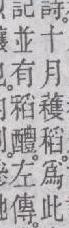 詩十月穫稻爲此
記並有稻醴左傳